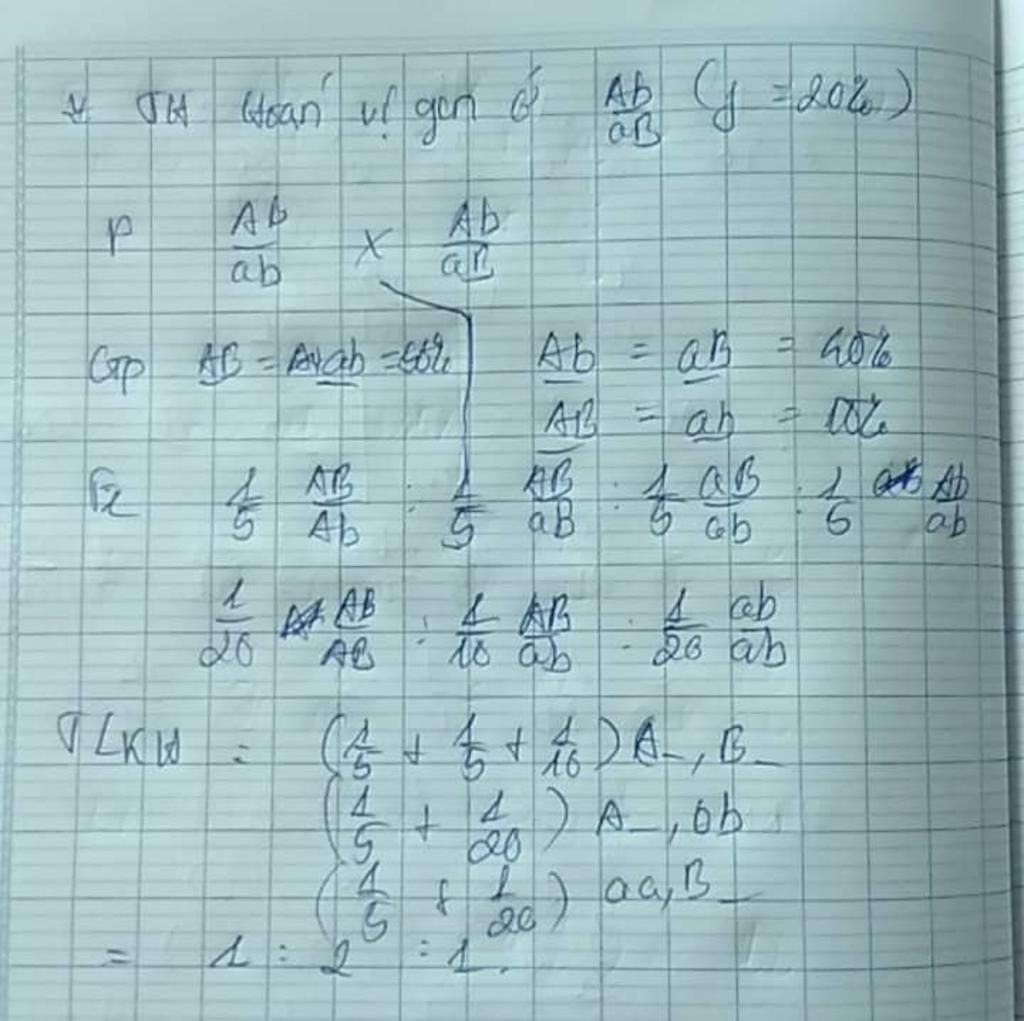 * TH Hoán vị gen ở Ab/aB (f = 20%)
P AB/ab x Ab/aB
Gp AB = ab = 50% Ab = aB = 40%
AB = ab = 10%
1/5 AB/Ab : 1/5 AB/aB : 1/5 aB/ab : 1/5 Ab/ab
1/20 AB/AB : 1/10 AB/ab : 1/20 ab/ab
TLKH = (1/5 + 1/5 + 1/10) A_, B_
(1/5 + 1/20) A_, bb
(1/5 + 1/20) aa, B_
= 1 : 2 : 1.